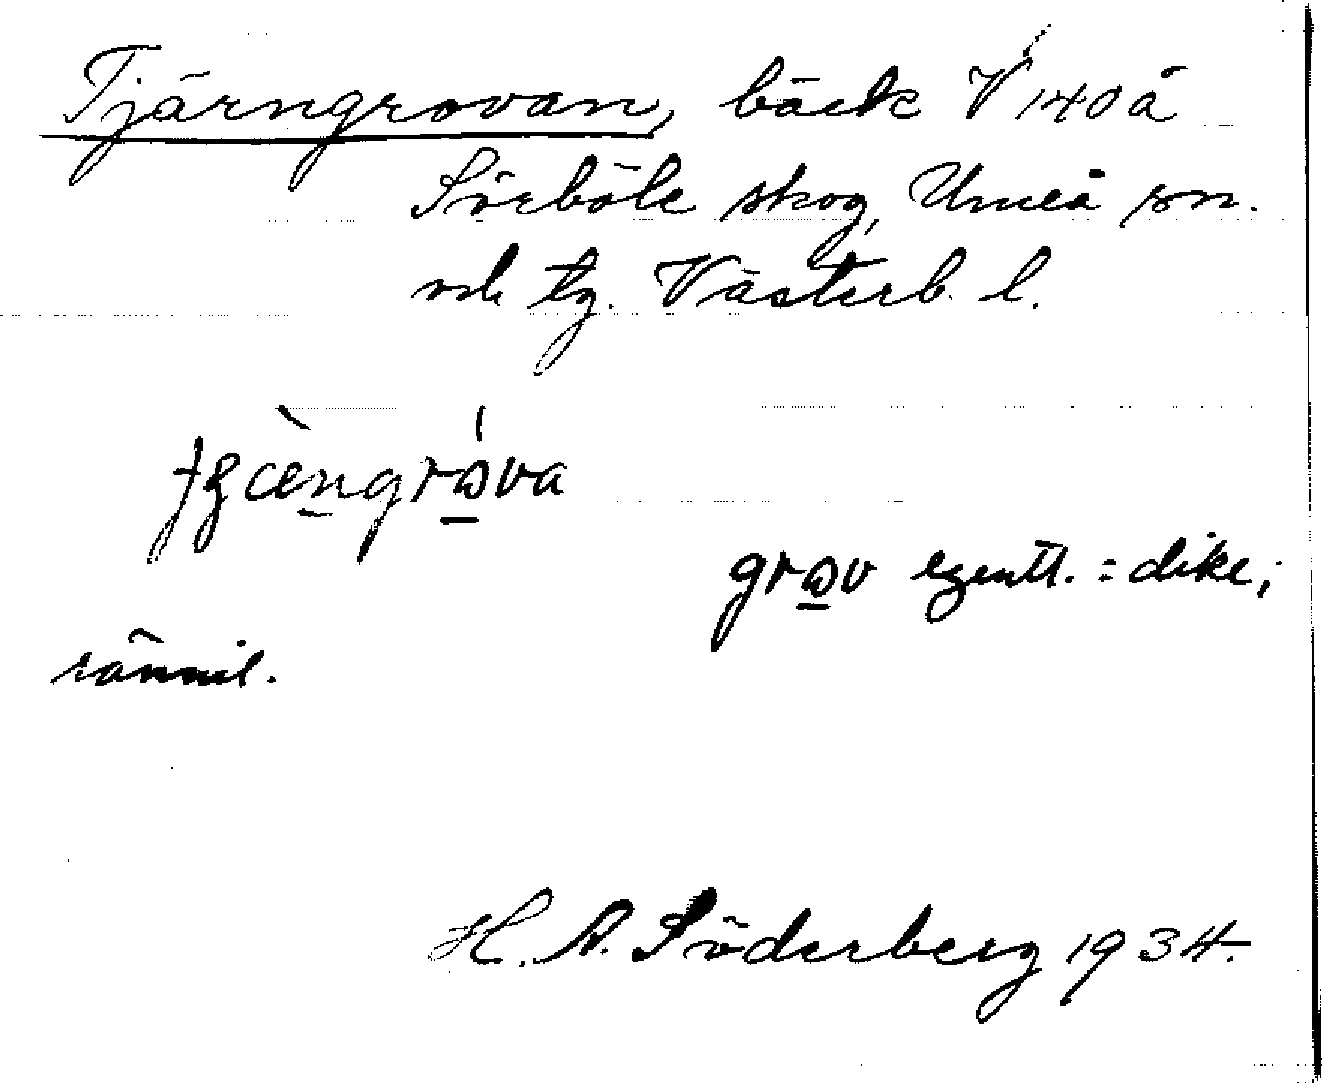 Tjärngrovan, bäck V 140 å
Sörböle skog, Umeå sn.
och tg. Västerb. l.
grov egentl. = dike,
rännil.
H. A. Söderberg 1934.